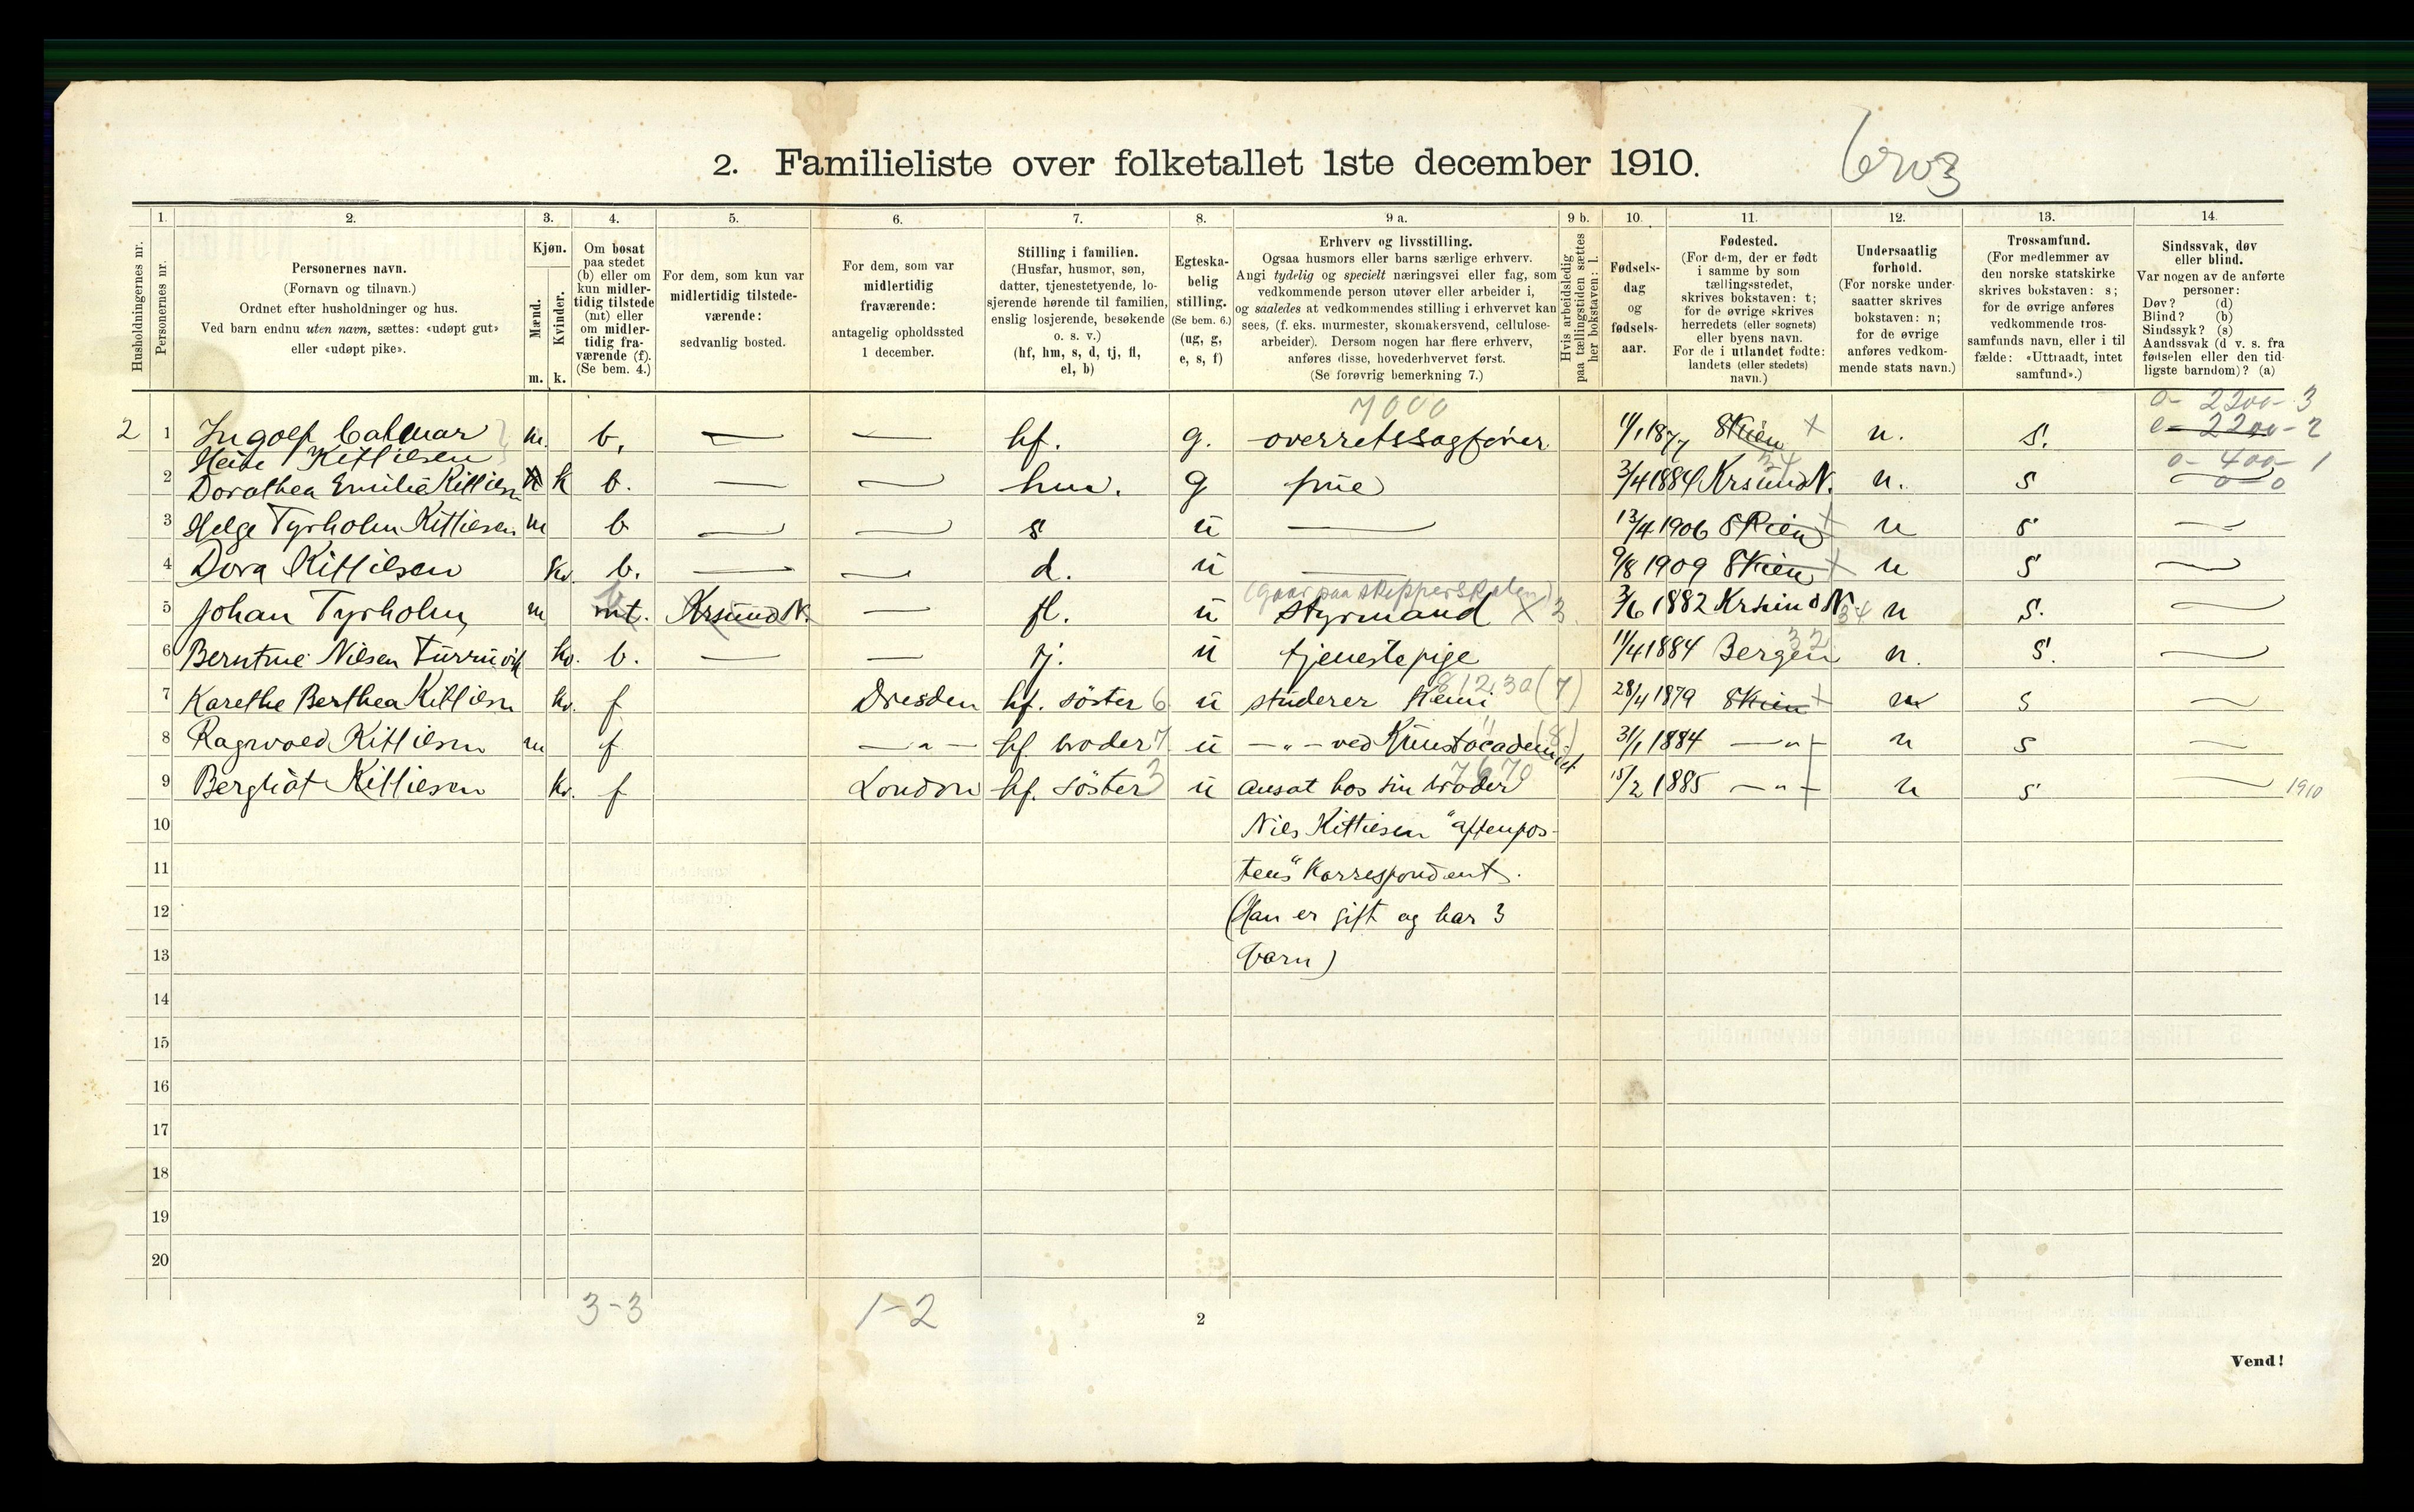 2. Familieliste over folketallet 1ste december 1910.
1. 2. 3. 4. 5. 6. 7. 8. 9 a. 9 b. 10. 11. 12. 13. 14.
Husholdningernes nr.
Personernes nr.
Personernes navn.
(Fornavn og tilnavn.)
Ordnet efter husholdninger og hus.
Ved barn endnu uten navn, sættes: «udøpt gut»
eller «udøpt pike».
Kjøn.
Mænd.
Kvinder.
m. k.
Om bosat
paa stedet
(b) eller om
kun midler-
tidig tilstede
(mt) eller
om midler-
tidig fra-
værende (f).
(Se bem. 4.)
For dem, som kun var
midlertidig tilstede-
værende:
sedvanlig bosted.
For dem, som var
midlertidig
fraværende:
antagelig opholdssted
1 december.
Stilling i familien.
(Husfar, husmor, søn,
datter, tjenestetyende, lo-
sjerende hørende til familien,
enslig losjerende, besøkende
o. s. v.)
(hf, hm, s, d, tj, fl,
el, b)
Egteska-
belig
stilling.
(Se bem. 6.)
(ug, g,
e, s, f)
Erhverv og livsstilling.
Ogsaa husmors eller barns særlige erhverv.
Angi tydelig og specielt næringsvei eller fag, som
vedkommende person utøver eller arbeider i,
og saaledes at vedkommendes stilling i erhvervet kan
sees, (f. eks. murmester, skomakersvend, cellulose-
arbeider). Dersom nogen har flere erhverv,
anføres disse, hovederhvervet først.
(Se forøvrig bemerkning 7.)
Hvis arbeidsledig
paa tællingstiden sættes
her bokstaven: l.
Fødsels-
dag
og
fødsels-
aar.
Fødested.
(For dem, der er født
i samme by som
tællingsstedet,
skrives bokstaven: t;
for de øvrige skrives
herredets (eller sognets)
eller byens navn.
For de i utlandet fødte:
landets (eller stedets)
navn.)
Undersaatlig
forhold.
(For norske under-
saatter skrives
bokstaven: n;
for de øvrige
anføres vedkom-
mende stats navn.)
Trossamfund.
(For medlemmer av
den norske statskirke
skrives bokstaven: s;
for de øvrige anføres
vedkommende tros-
samfunds navn, eller i til
fælde: «Uttraadt, intet
samfund».)
Sindssvak, døv
eller blind.
Var nogen av de anførte
personer:
Døv? (d)
Blind? (b)
Sindssyk? (s)
Aandssvak (d v. s. fra
fødselen eller den tid-
ligste barndom)? (a)
7000
o- 2200- 3
e- 2200- 2
2 1 Ingolf Calmar m. b. — — hf. g. overretssagfører 11/1 1877 Skien n. s.
Kittilsen
o- 400- 1
0-0
2 Dorothea Emilie Kittilsen k b. — — hm. g frue 3/4 1884 Krsund N. n. s
3 Helge Tyrholm Kittilsen m b — — s u — 13/4 1906 Skien n s —
4 Dora Kittilsen kv. b. — — d. u — 9/8 1909 Skien n s —
(gaar paa skipperskolen)
5 Johan Tyrholm m mt. Krsund N. — fl. u styrmand X 3 3/6 1882 Krsund N. 34 n s. —
6 Berntine Nilsen kv. b. — — tj. u tjenestepige 11/4 1884 Bergen 32 n. s. —
7 Karethe Berthea Kittilsen kv. f Dresden hf. söster 6 u studerer Kemi (7) 28/4 1879 Skien n s —
8 Ragnvald Kittilsen m f —"— hf. broder 7 u —"— ved Kunstacademiet (8) 31/1 1884 —"— n s —
7670
9 Bergliot Kittilsen kv. f London hf. söster 3 u ansat hos sin broder 15/2 1885 —"— n s — 1910
10 Nils Kittilsen "aftenpos-
11 tens" Korrespondent.
12 (Han er gift og har 3
13 barn)
14
15
16
17
18
19
20
3-3 1-2
2
Vend!